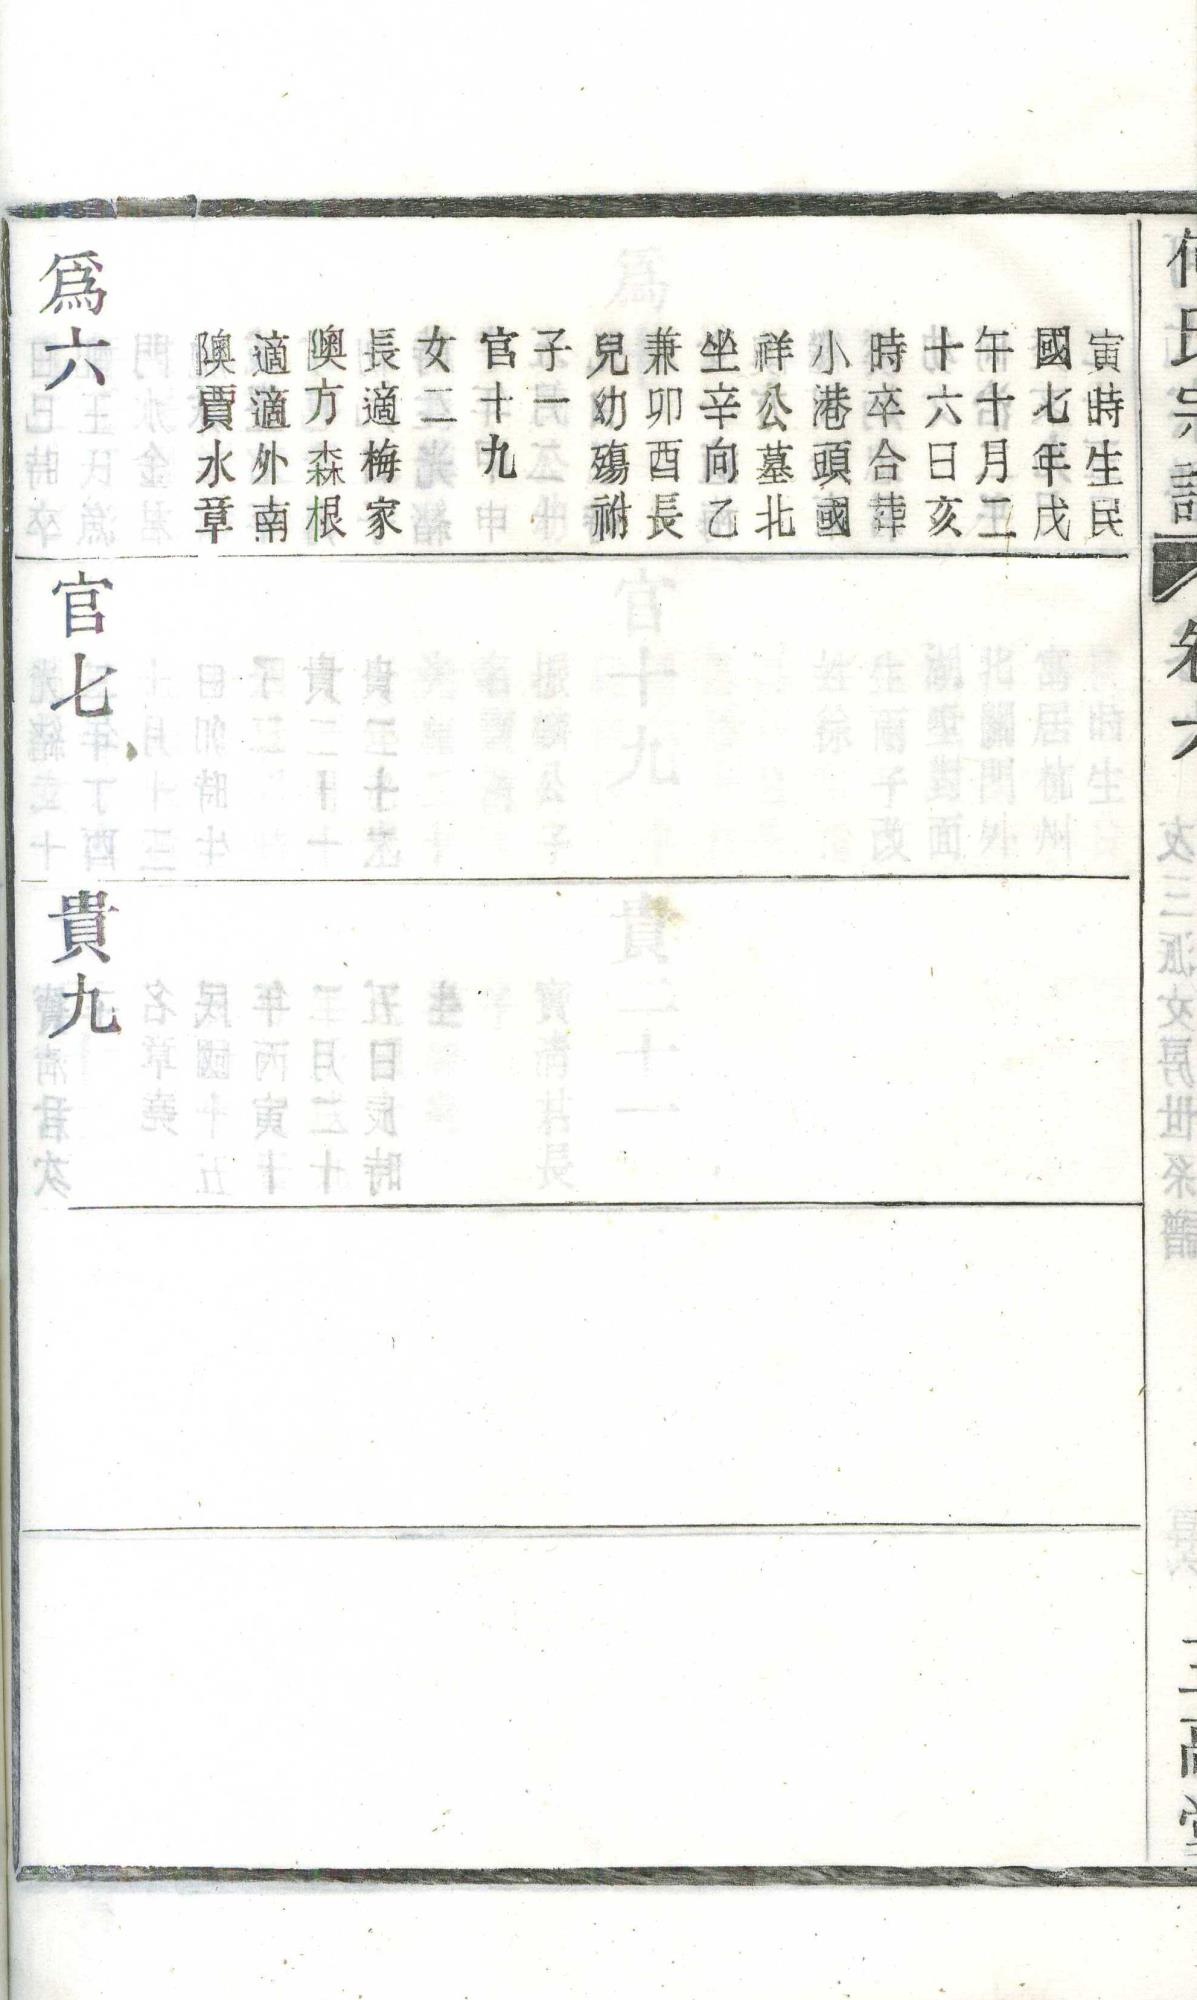 寅時生民
國七年戊
午十月二
十六日亥
時卒合葬
小港頭國
祥公墓北
坐辛向乙
兼卯酉長
兒幼殤祔
子一
官十九
女二
長適梅家
隩方森根
適適外南
隩賈水章
爲六
官七
貴九